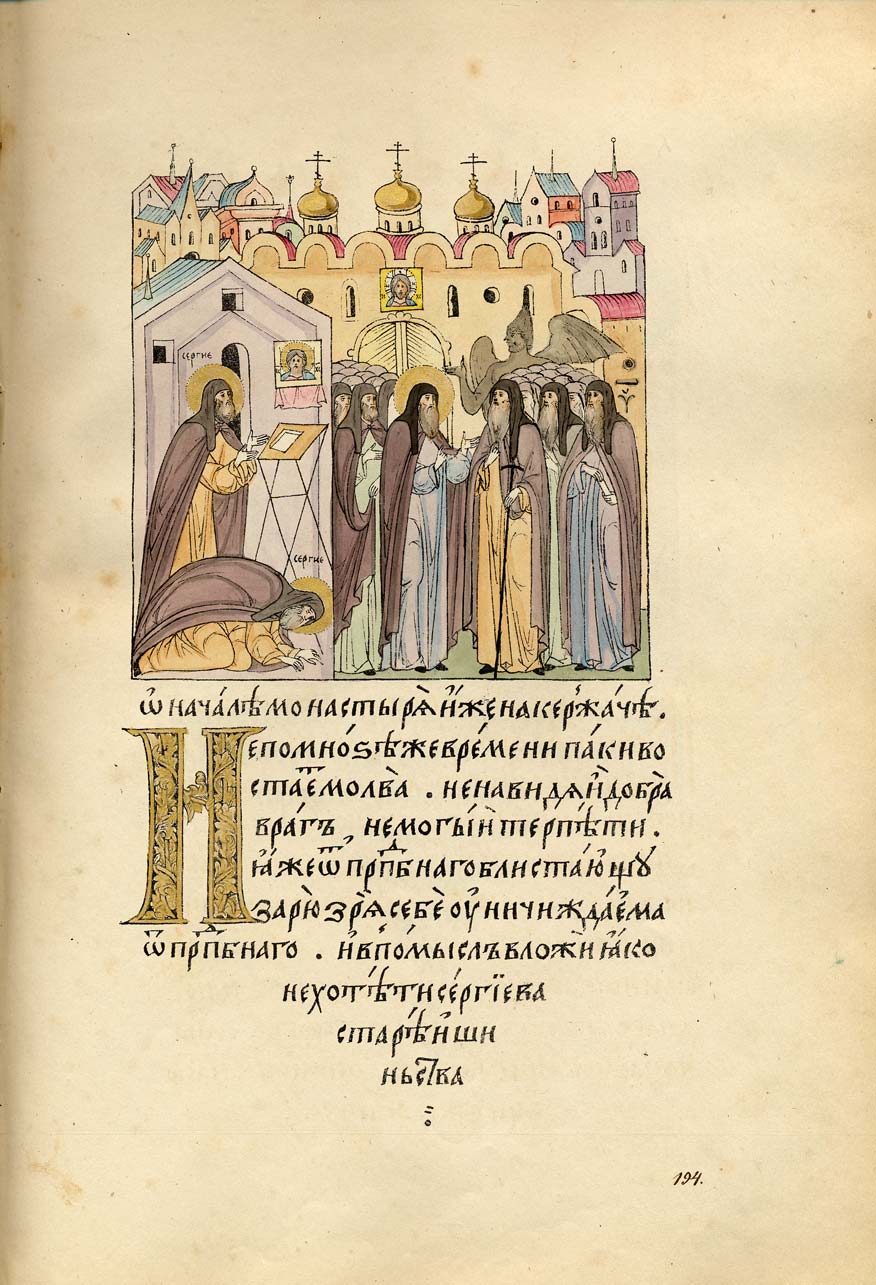 сергїе
сергїе
Ѡ нача́лѣ монастырѧ̀ и҆́же на ке́ржачѣ.
Не по мно́ѕѣ же вре́мени па́ки во
стае́тъ молва̀. ненавидѧ́й добра̀
вра́гъ, не могы́й терпѣ́ти.
ꙗ҆́же ѿ прпⷣбнаго блиста́ющꙋ
зарю̀ зрѧ̀ себѐ оу҆ничижда́ема
ѿ прпⷣбнаго. и҆ в помыслъ вложѝ ꙗ҆́ко
не хотѣ́ти се́ргїева
старѣ́йши
ньства
194.